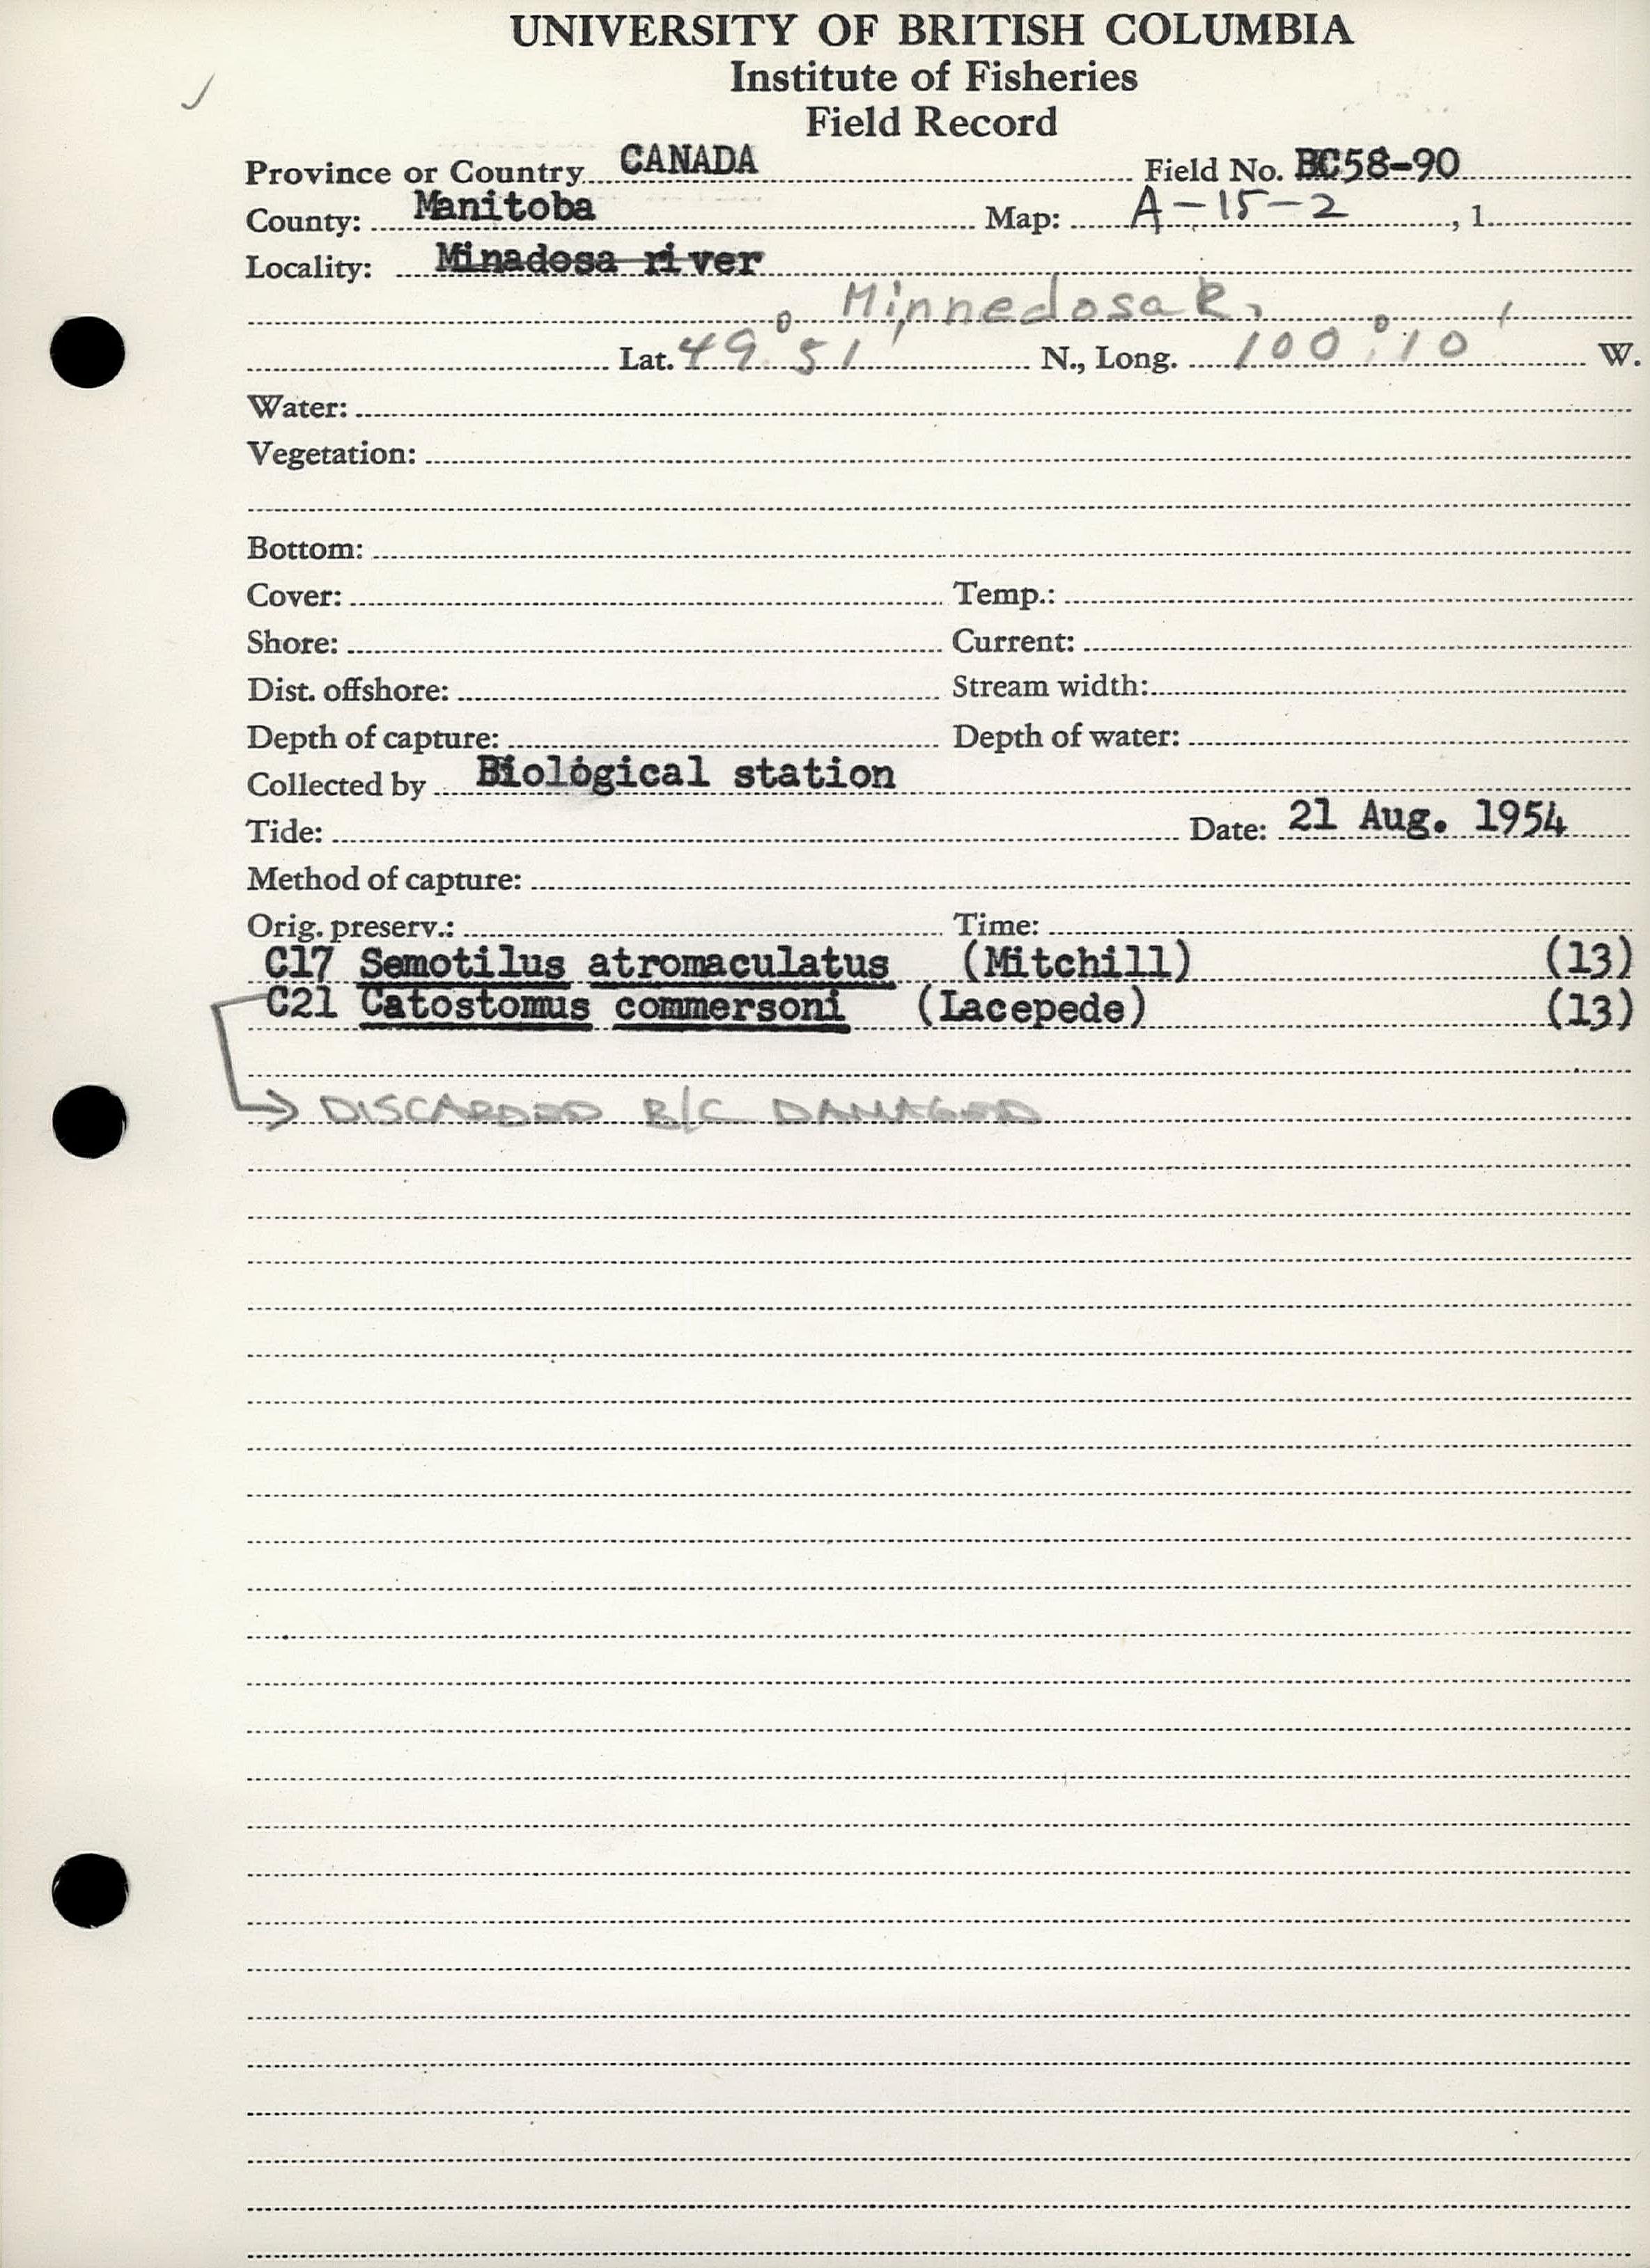 UNIVERSITY OF BRITISH COLUMBIA
Institute of Fisheries
Field Record
Province or Country CANADA Field No. BC58-90
County: Manitoba Map: A-15-2, 1
Locality: Minadosa river
Minnedosa R.
Lat. 49° 51' N., Long. 100° 10' W.
Water:
Vegetation:
Bottom:
Cover: Temp.:
Shore: Current:
Dist. offshore: Stream width:
Depth of capture: Depth of water:
Collected by Biological station
Tide: Date: 21 Aug. 1954
Method of capture:
Orig. preserv.: Time:
C17 Semotilus atromaculatus (Mitchill) (13)
C21 Catostomus commersoni (Lacepede) (13)
→ DISCARDED B/C DAMAGED